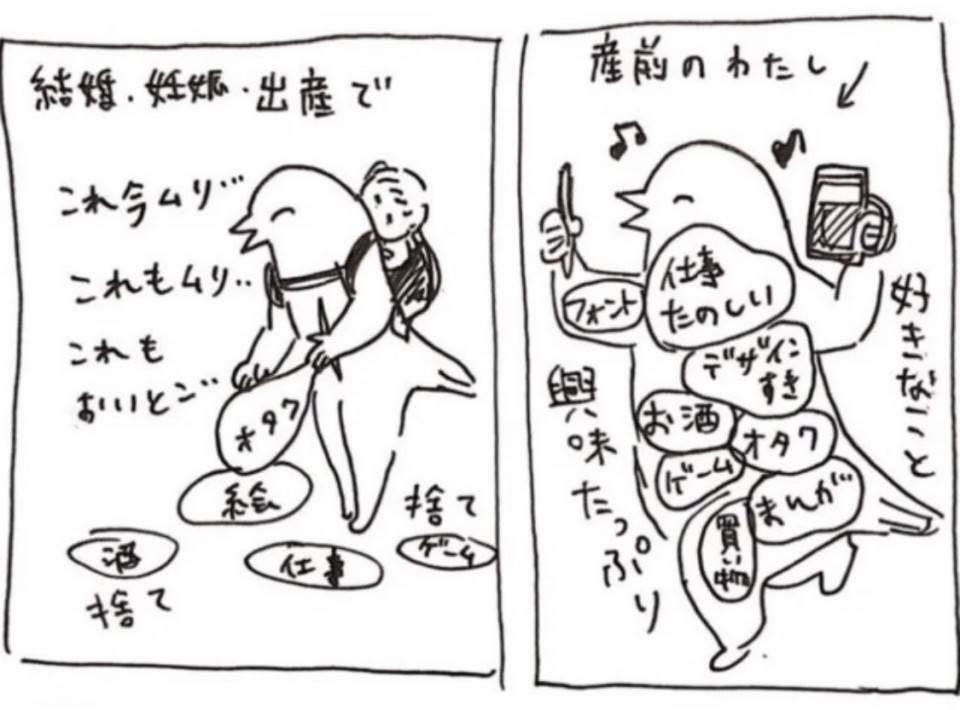 産前のわたし
仕事
たのしい
フォント
デザイン
すき
お酒
オタク
ゲーム
まんが
買い物
好きなこと
興味たっぷり
結婚・妊娠・出産で
これ今ムリ…
これもムリ…
これも
おいとこ…
オタク
絵
酒
仕事
ゲーム
捨て
捨て